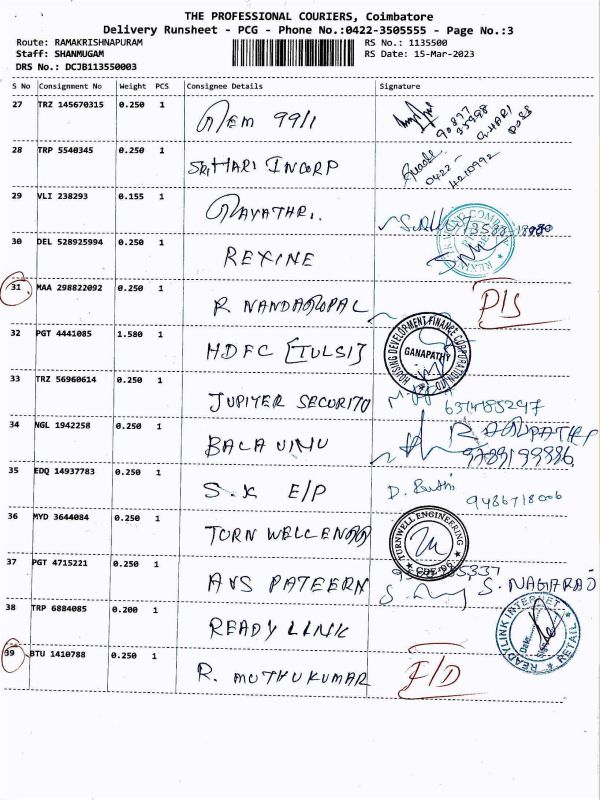 THE PROFESSIONAL COURIERS, Coimbatore
Delivery Runsheet - PCG - Phone No.:0422-3505555 - Page No.:3
Route: RAMAKRISHNAPURAM RS No.: 1135500
Staff: SHANMUGAM RS Date: 15-Mar-2023
DRS No.: DCJB113550003
S No Consignment No Weight PCS Consignee Details Signature
27 TRZ 145670315 0.250 1
GEM 99/1
28 TRP 5540345 0.250 1
SRI HARI INCORP
0422-
4210992
29 VLI 238293 0.155 1
GAYATHRI.
30 DEL 528925994 0.250 1
REXINE
31 MAA 298822092 0.250 1
R NANDAGOPAL
32 PGT 4441085 1.580 1
HDFC [TULSI]
HOUSING DEVELOPMENT FINANCE CORPORATION LTD
GANAPATHY
33 TRZ 56960614 0.250 1
JUPITER
34 NGL 1942258 0.250 1
BALA VINU
RAGUPATHI
35 EDQ 14937783 0.250 1
S.K E/P
D.
9486718006
36 MYD 3644084 0.250 1
TURN WELL
TURNWELL ENGINEERING
37 PGT 4715221 0.250 1
AVS PATEERN
S. NAGARAJ
38 TRP 6884085 0.200 1
READY LINK
READYLINK INTERNET
RETAIL
39 BTU 1410788 0.250 1
R. MUTHUKUMAR
F/D